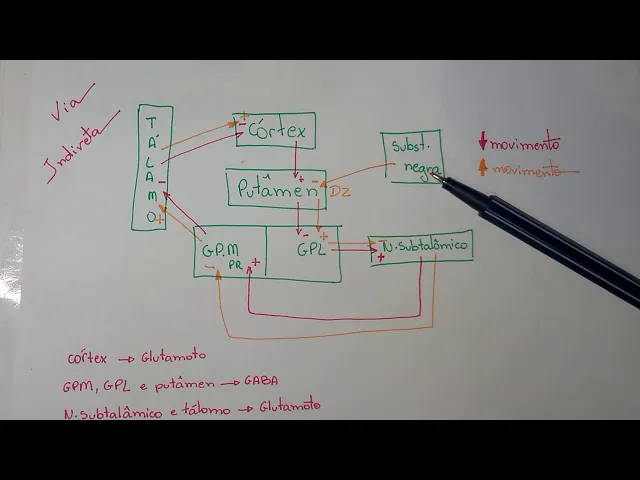 Via
Indireta
TÁLAMO
- +
+ -
Córtex
+ -
Putâmen
D2
Subst.
negra
↓ movimento
↑ movimento
GP.M
PR
- +
- +
GPL
-
+
N. Subtalâmico
córtex → Glutamato
GPM, GPL e putâmen → GABA
N. Subtalâmico e tálamo → Glutamato